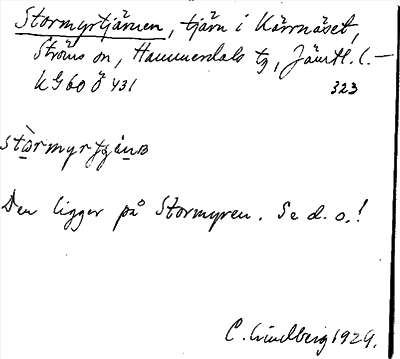 Stormyrtjärnen, tjärn i Kärrnäset,
Ströms sn, Hammerdals tg, Jämtl. l. —
KG 60 Ö 431 323
Den ligger på Stormyren. Se d. o.!
C. Lindberg 1929.